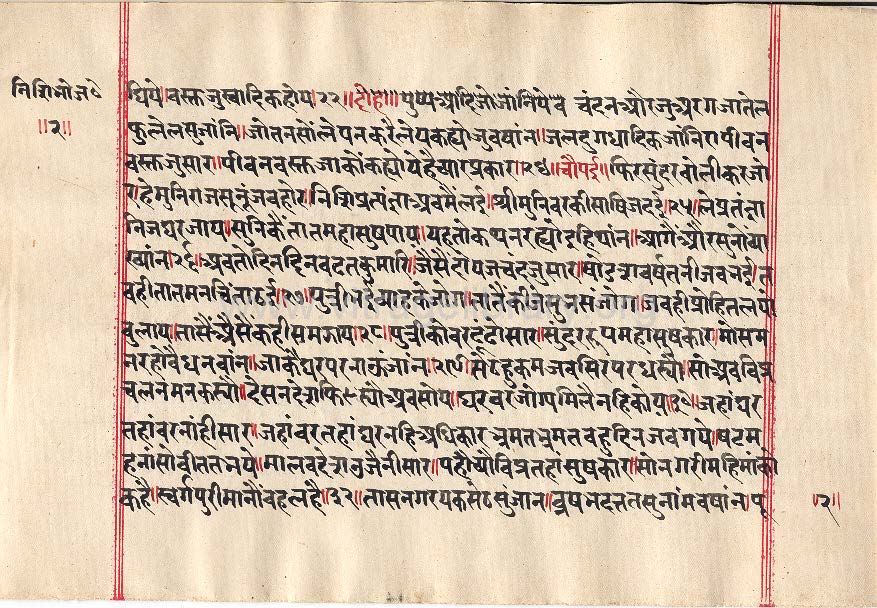 निशिभोज
॥२॥
षिये।वस्तजुस्वादिकहोय।२२॥दोहा॥पुष्पआदिजोजांनियेव चंदनऔरजुअरगजातेल
फुलेलसुजांनि।जोतनसोंलेपनकरैलेपकह्योजुवषांन।जलदुगधादिकजांनिरापीवन
वस्तजुसार।पीवनवस्तजाकोंकह्योयेहैच्यारप्रकार।२४॥चौपई॥फिरसुंदरवोलीकरजो
र।हेमुनिराजसुनूंजवहोर।निशिप्रत्यंज्ञाअवमैंलई।श्रीमुनिवरकीसाषिजदई।२५।लेप्रतंज्ञा
निजघरजाय।सुनिकैंतातमहासुषपाय।यहतोकथनरह्योइहिथांन।आगैंऔरसुनोंव्या
ख्यांन।२६।अवतोदिनदिनवढतकुमारि।जैसेंदोयजचंदजुसार।षोडशवर्षतनीजवभई।त
वहीतातमनचिंताठई।२७।पुत्रीभईव्याहकेजोग।
वुलाय।तासैंअैसेंकहीसमजाय।२८।पुत्रीकोवरढूंढोसार।सुंदररूपमहासुषकार।मोसम
नरहोवैधनवांन।जाकेंघरपरनाऊंजांन।२९।सेठहुकमजवसिरपरधर्‍यौ।सोअवविप्र
चलनेमनकर्‍यौ।देसनदेशफिर्‍यौअवसोय।घरवरजोग्यमिलैनहिकोय।३०।जहांघर
तहांवरनांहीसार।जहांवरतहांघरनहिअधिकार।भ्रमतभ्रमतवहुदिनजवगये।षटम
हनांसोवीततभये।मालवदेशउजैनीसार।पहोंच्यौविप्रतहांसुषकार।सोनगरीमहिमांको
कहै।स्वर्गपुरीमानौंवहलहै।३२।तासनगरयकसेठसुंजान।व्रषभदत्ततसुनांमवषांन।पू
॥२॥